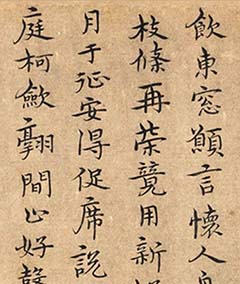 飲東窓願言懷人
枝條再榮競用新
月于征安得促席説
庭柯斂翮間止好聲